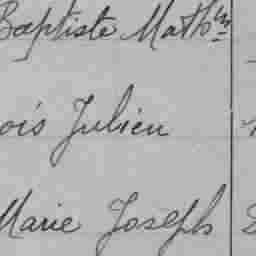 Baptiste Math in
ois Julien
Marie Joseph